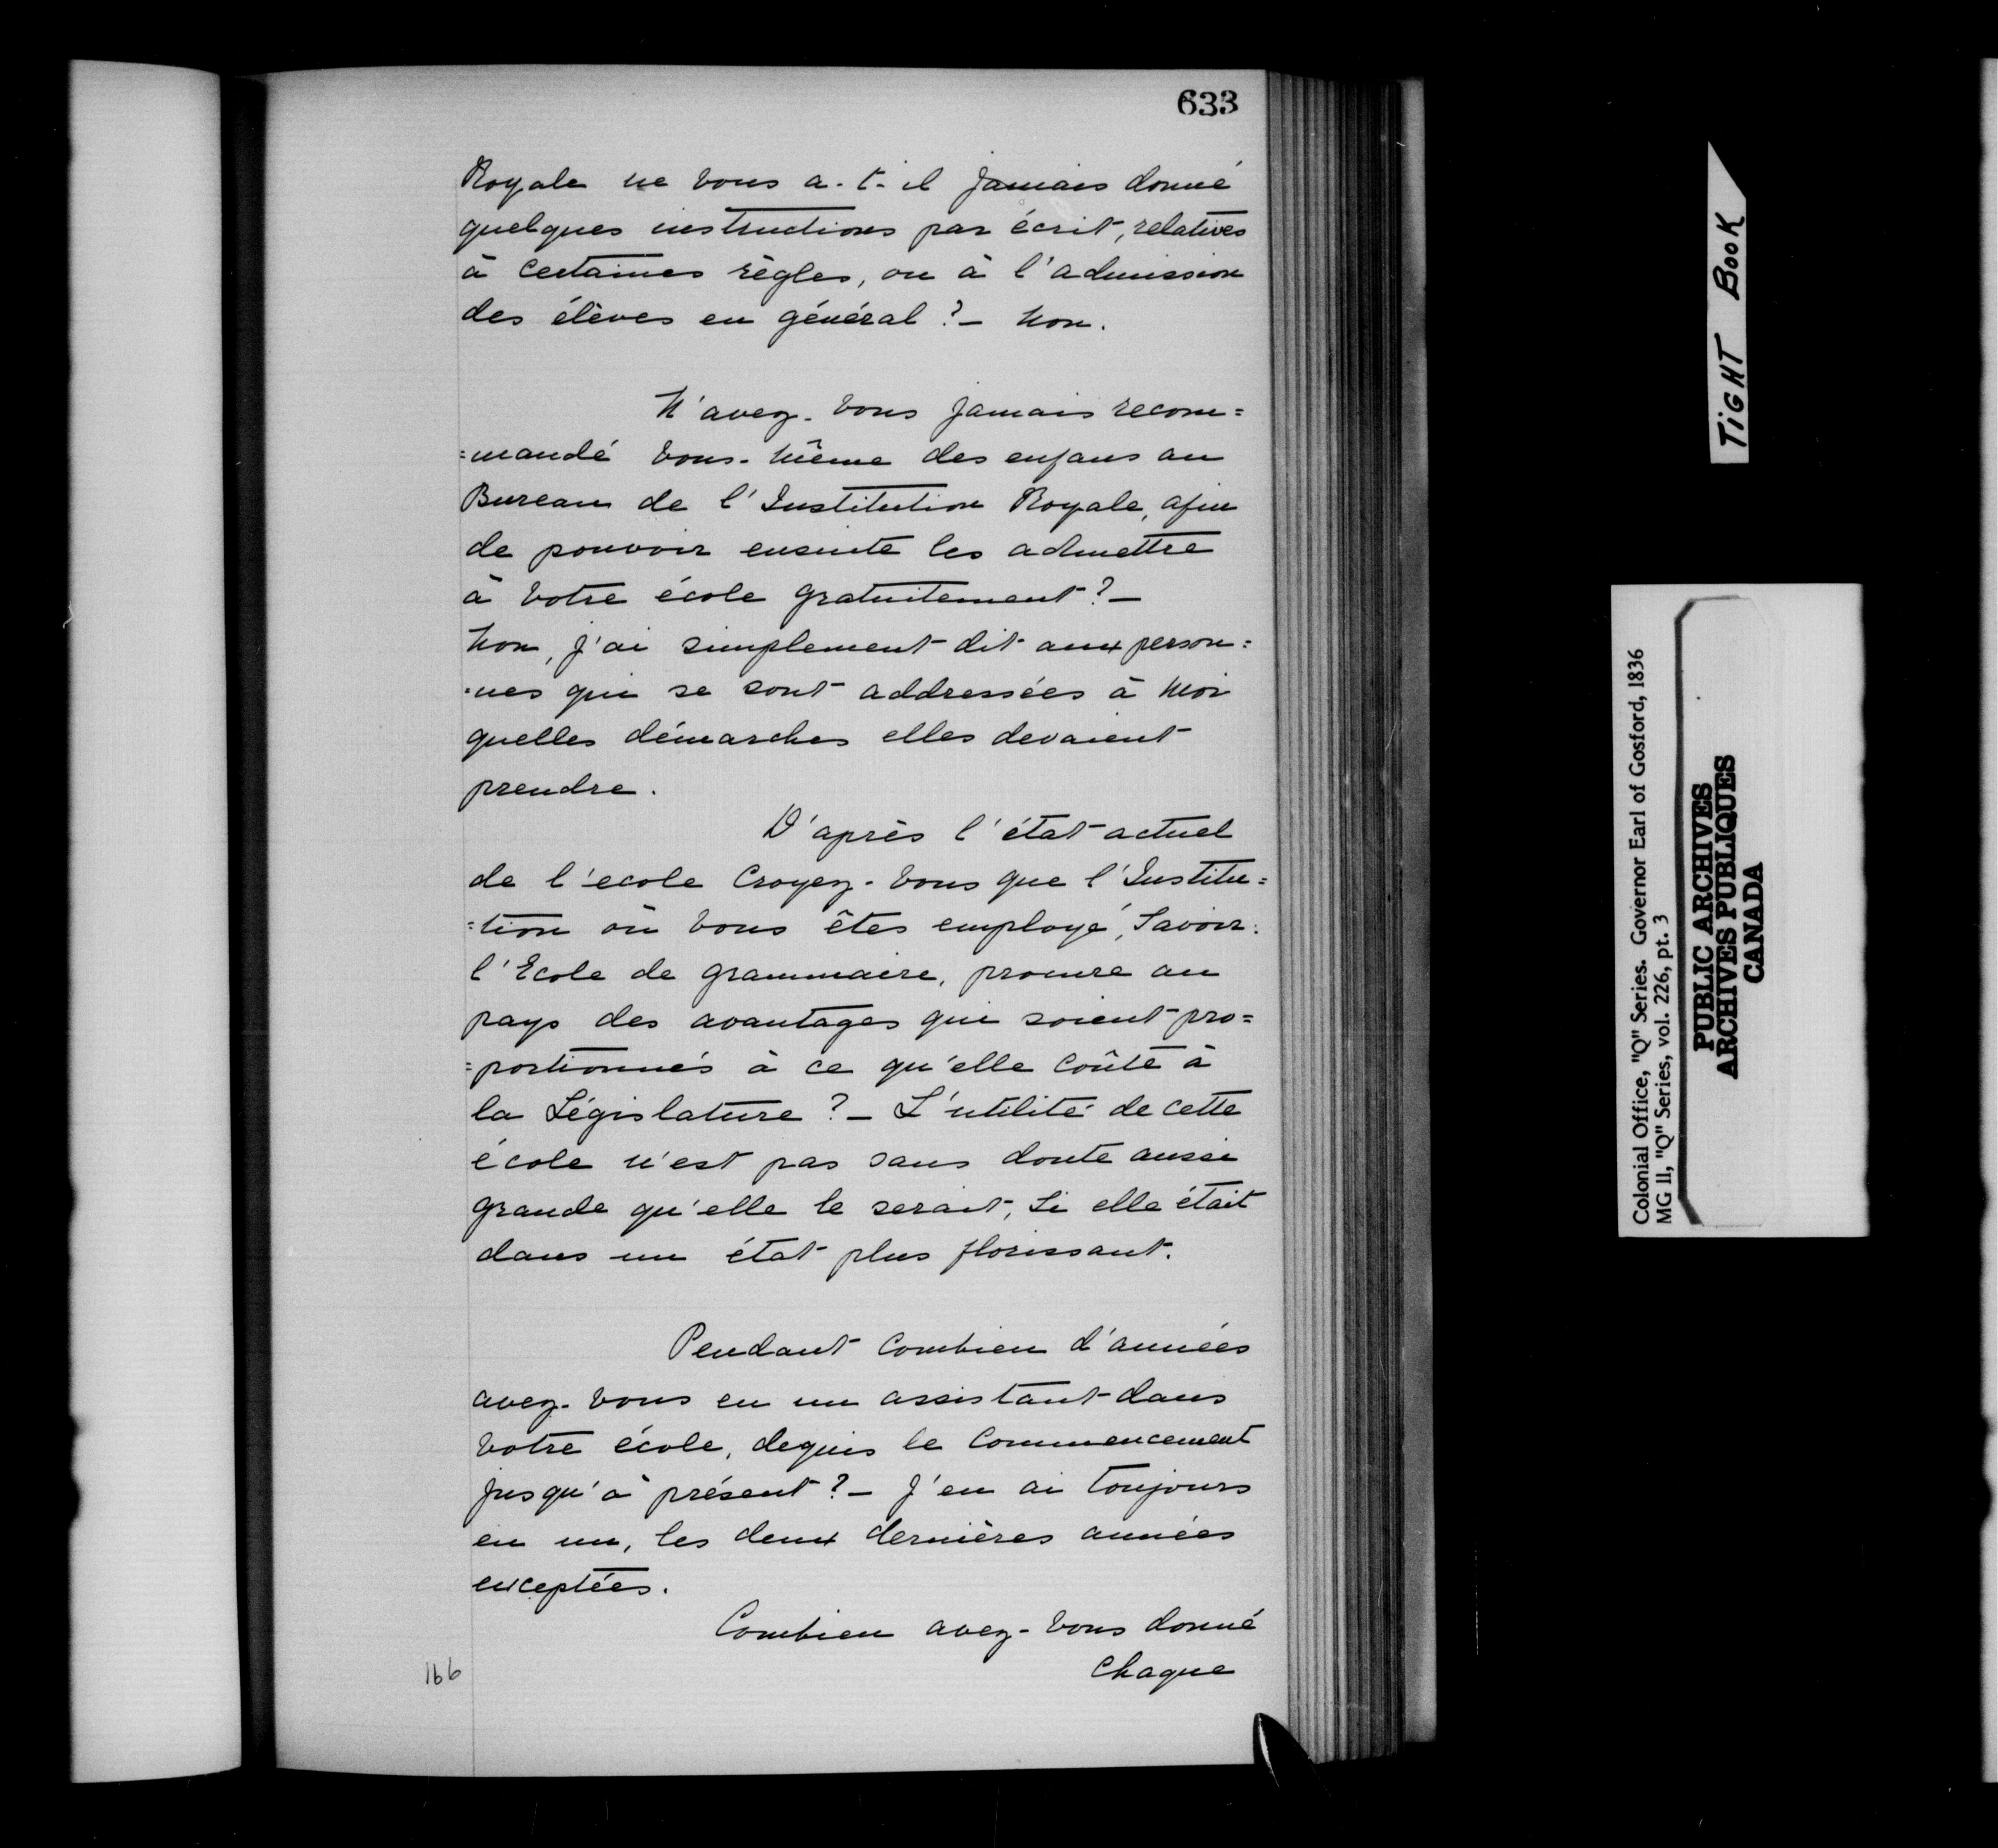 633
Royale ne vous a-t-il jamais donné
quelques instructions par écrit, relatives
à certaines règles, ou à l'admission
des élèves en général? - Non.
N'avez-vous jamais recom=
=mandé vous-même des enfans au
Bureau de l'Institution Royale, afin
de pouvoir ensuite les admettre
à votre école gratuitement? -
Non, j'ai simplement dit aux person=
=nes qui se sont addressées à moi
quelles démarches elles devaient
prendre.
D'après l'état actuel
de l'ecole croyez-vous que l'Institu=
=tion où vous êtes employé, Savoir:
l'Ecole de grammaire, procure au
pays des avantages qui soient pro=
=portionnés à ce qu'elle coûte à
la Législature? - L'utilité de cette
école n'est pas sans doute aussi
grande qu'elle le serait, Si elle était
dans un état plus florissant.
Pendant combien d'années
avez-vous eu un assistant dans
votre école, depuis le commencement
jusqu'à présent? - J'en ai toujours
eu un, les deux dernières années
exceptées.
Combien avez-vous donné
chaque
166
TIGHT BOOK
Colonial Office, "Q" Series. Governor Earl of Gosford, 1836
MG 11, "Q" Series, vol. 226, pt. 3
PUBLIC ARCHIVES
ARCHIVES PUBLIQUES
CANADA